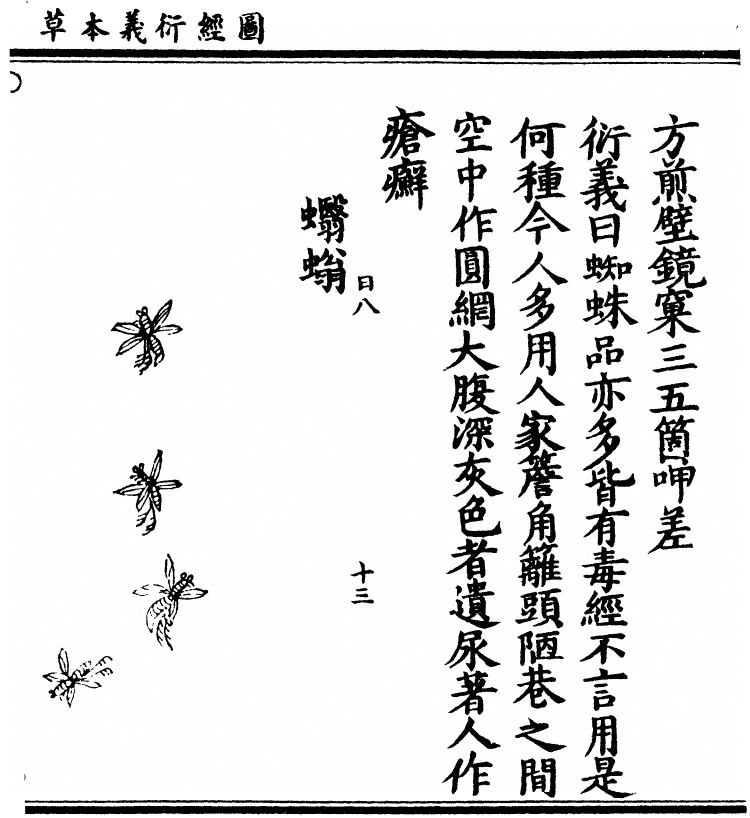 圖經衍義本草
方煎壁鏡窠三五箇呷差
衍義曰蜘蛛品亦多皆有毒經不言用是
何種今人多用人家簷角籬頭陋巷之間
空中作圓網大腹深灰色者遺尿著人作
瘡癬
蠮螉
日八
十三